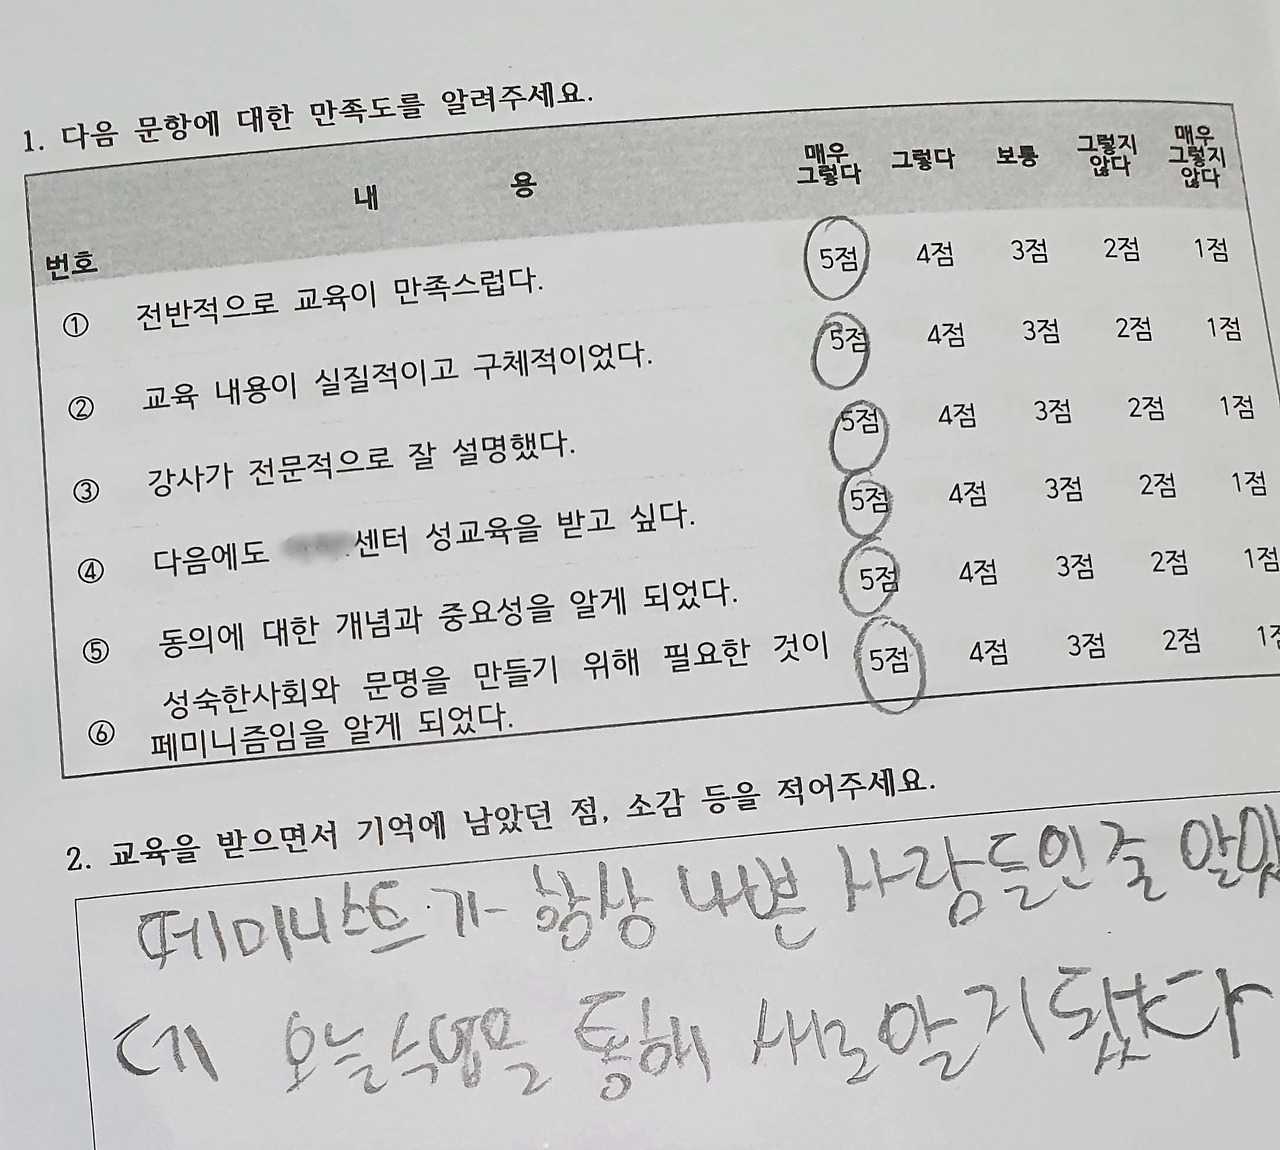 1. 다음 문항에 대한 만족도를 알려주세요.
번호 내 용 매우 그렇다 그렇다 보통 그렇지 않다 매우 그렇지 않다
① 전반적으로 교육이 만족스럽다. 5점 4점 3점 2점 1점
② 교육 내용이 실질적이고 구체적이었다. 5점 4점 3점 2점 1점
③ 강사가 전문적으로 잘 설명했다. 5점 4점 3점 2점 1점
④ 다음에도 센터 성교육을 받고 싶다. 5점 4점 3점 2점 1점
⑤ 동의에 대한 개념과 중요성을 알게 되었다. 5점 4점 3점 2점 1점
⑥ 성숙한사회와 문명을 만들기 위해 필요한 것이 5점 4점 3점 2점 1점
페미니즘임을 알게 되었다.
2. 교육을 받으면서 기억에 남았던 점, 소감 등을 적어주세요.
페미니스트가 항상 나쁜 사람들인줄 알았
는데 오늘수업을 통해 새로알기됐다